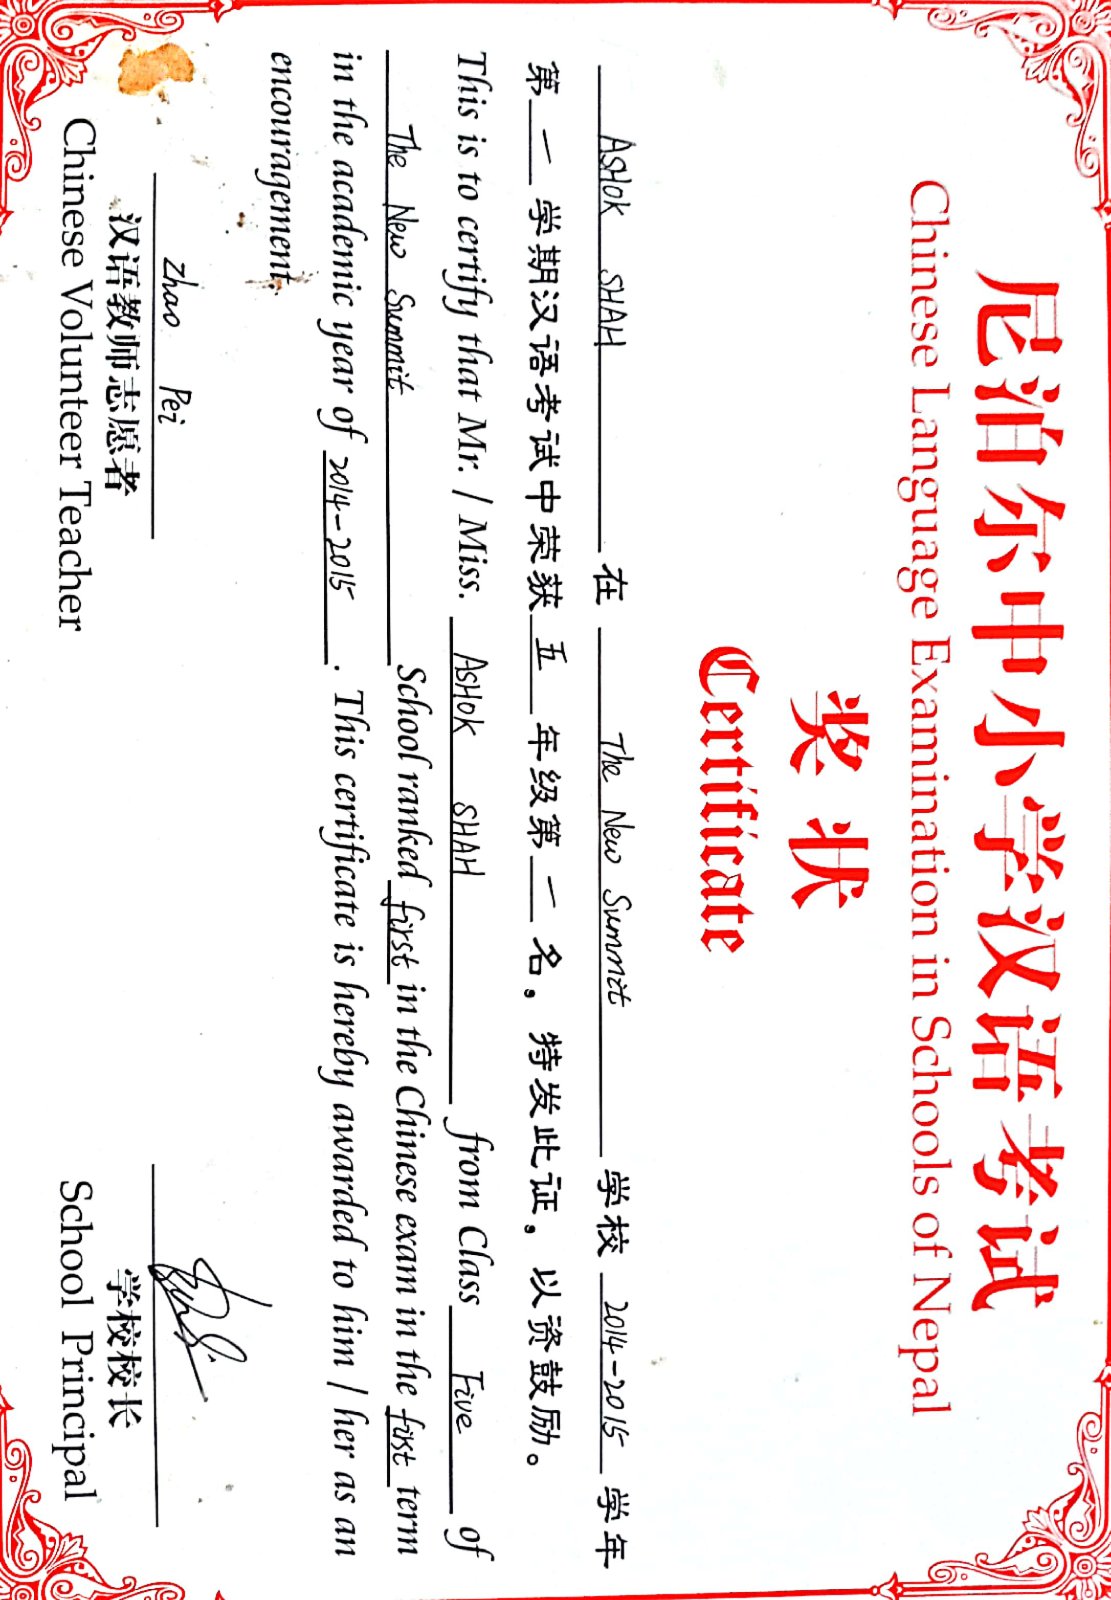 尼泊尔中小学汉语考试
Chinese Language Examination in Schools of Nepal
奖 状
Certificate
ASHOK SHAH 在 The New Summit 学校 2014-2015 学年
第 一 学期汉语考试中荣获 五 年级第 一 名，特发此证，以资鼓励。
This is to certify that Mr. / Miss. ASHOK SHAH from Class Five of
The New Summit School ranked first in the Chinese exam in the first term
in the academic year of 2014-2015. This certificate is hereby awarded to him / her as an
encouragement.
Zhao Pei
汉语教师志愿者
Chinese Volunteer Teacher
学校校长
School Principal